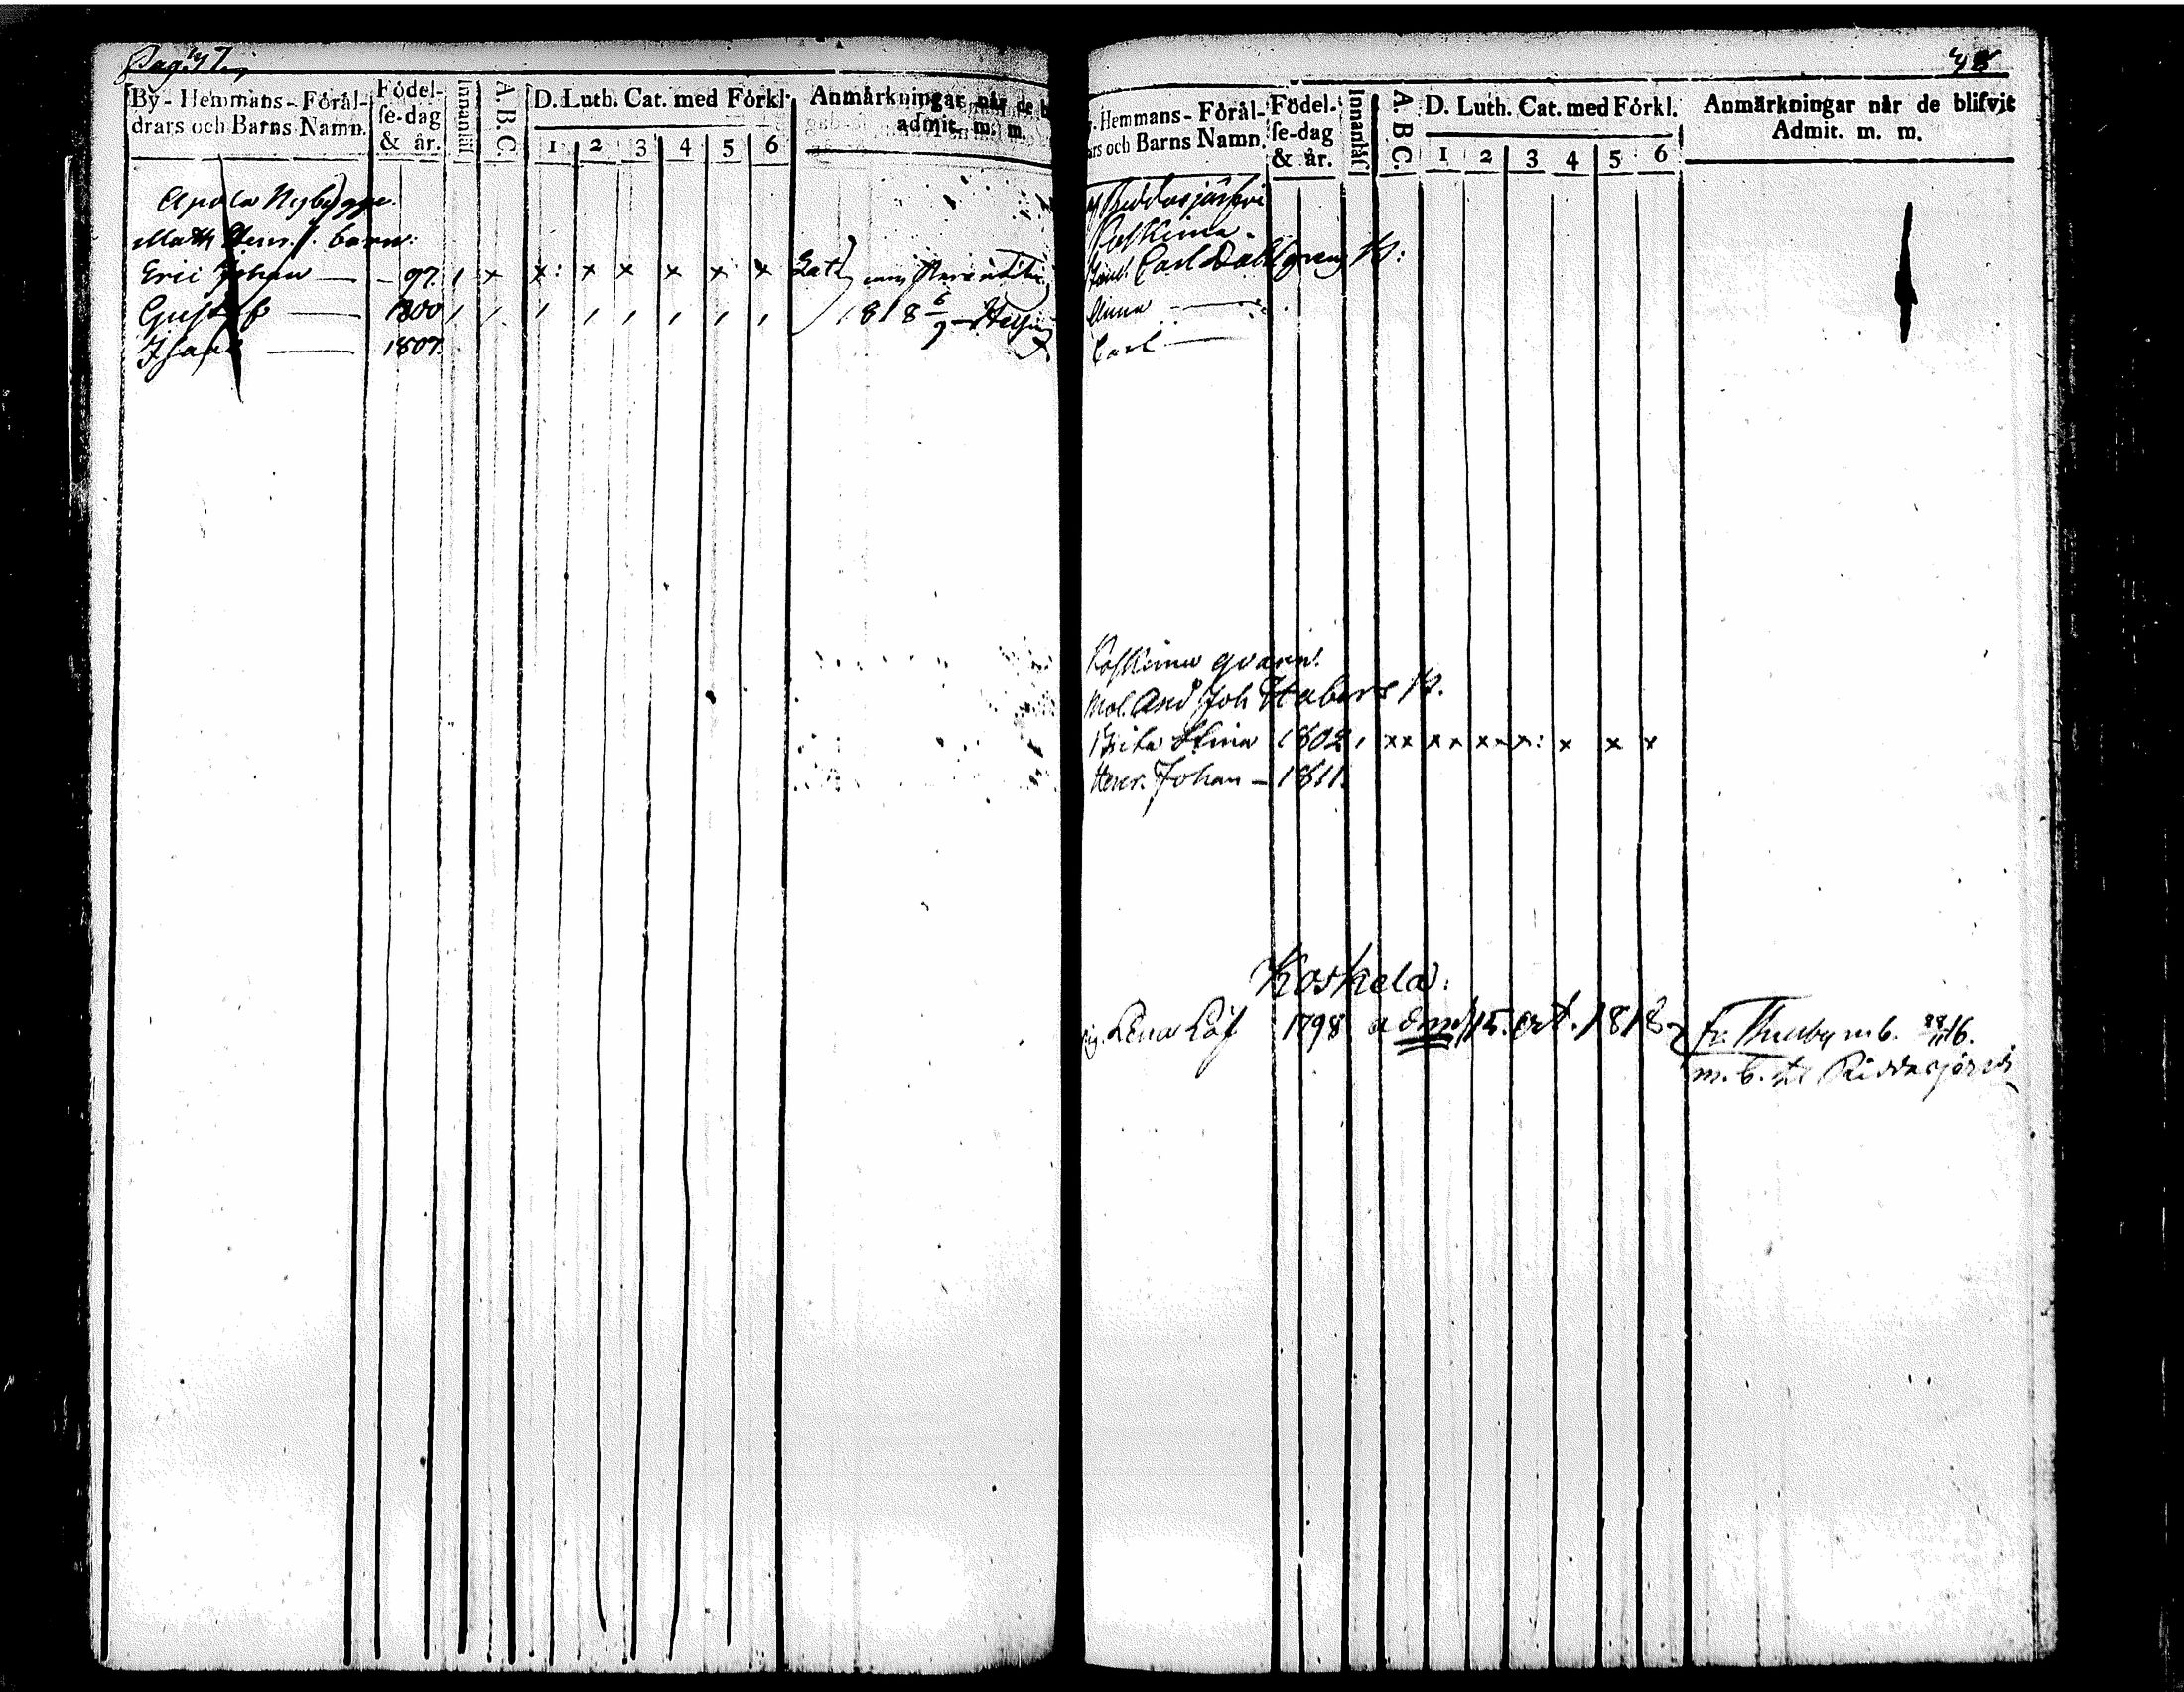 Pag. 47.
By-Hemmans-Föräl-
drars och Barns Namn.
Födel-
se-dag
& år.
Innantil
A.B.C.
D. Luth. Cat. med Förkl.
1 2 3 4 5 6
Anmärkningar når de b
admit. m. m.
Nybygge
Math Henr. s. barn:
Eric Johan — 97. , x x: x x x x x
Gustaf — 1800 , , , , , , , ,
1818 6/9
Isaac — 1807.
48
Hemmans-Föräl-
ars och Barns Namn.
Födel-
se-dag
& år.
Innantil
A. B C.
D. Luth. Cat. med Förkl.
1 2 3 4 5 6
Anmärkningar når de blifvit
Admit. m. m.
Carl Dahlgrens
Anna —
Carl —
qvarn.
And Joh
Brita Stina 1802 , xx xx xx x: x x x
Henr. Johan — 1811.
Koskela:
Lena Löf 1798 adm. 15. oct. 1818
fr. Thusby m b. 16.
m. b. til Riddasjärvi